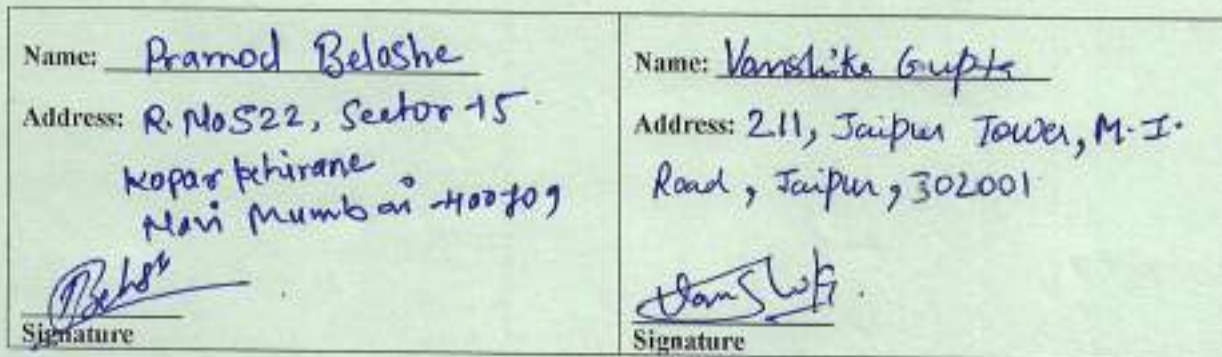 Name: Pramod Beloshe
Address: R. No 522, Sector-15
Kopar Khirane
Navi Mumbai-400709
Signature
Name: Vanshika Gupta
Address: 211, Jaipur Tower, M.I.
Road, Jaipur, 302001
Signature